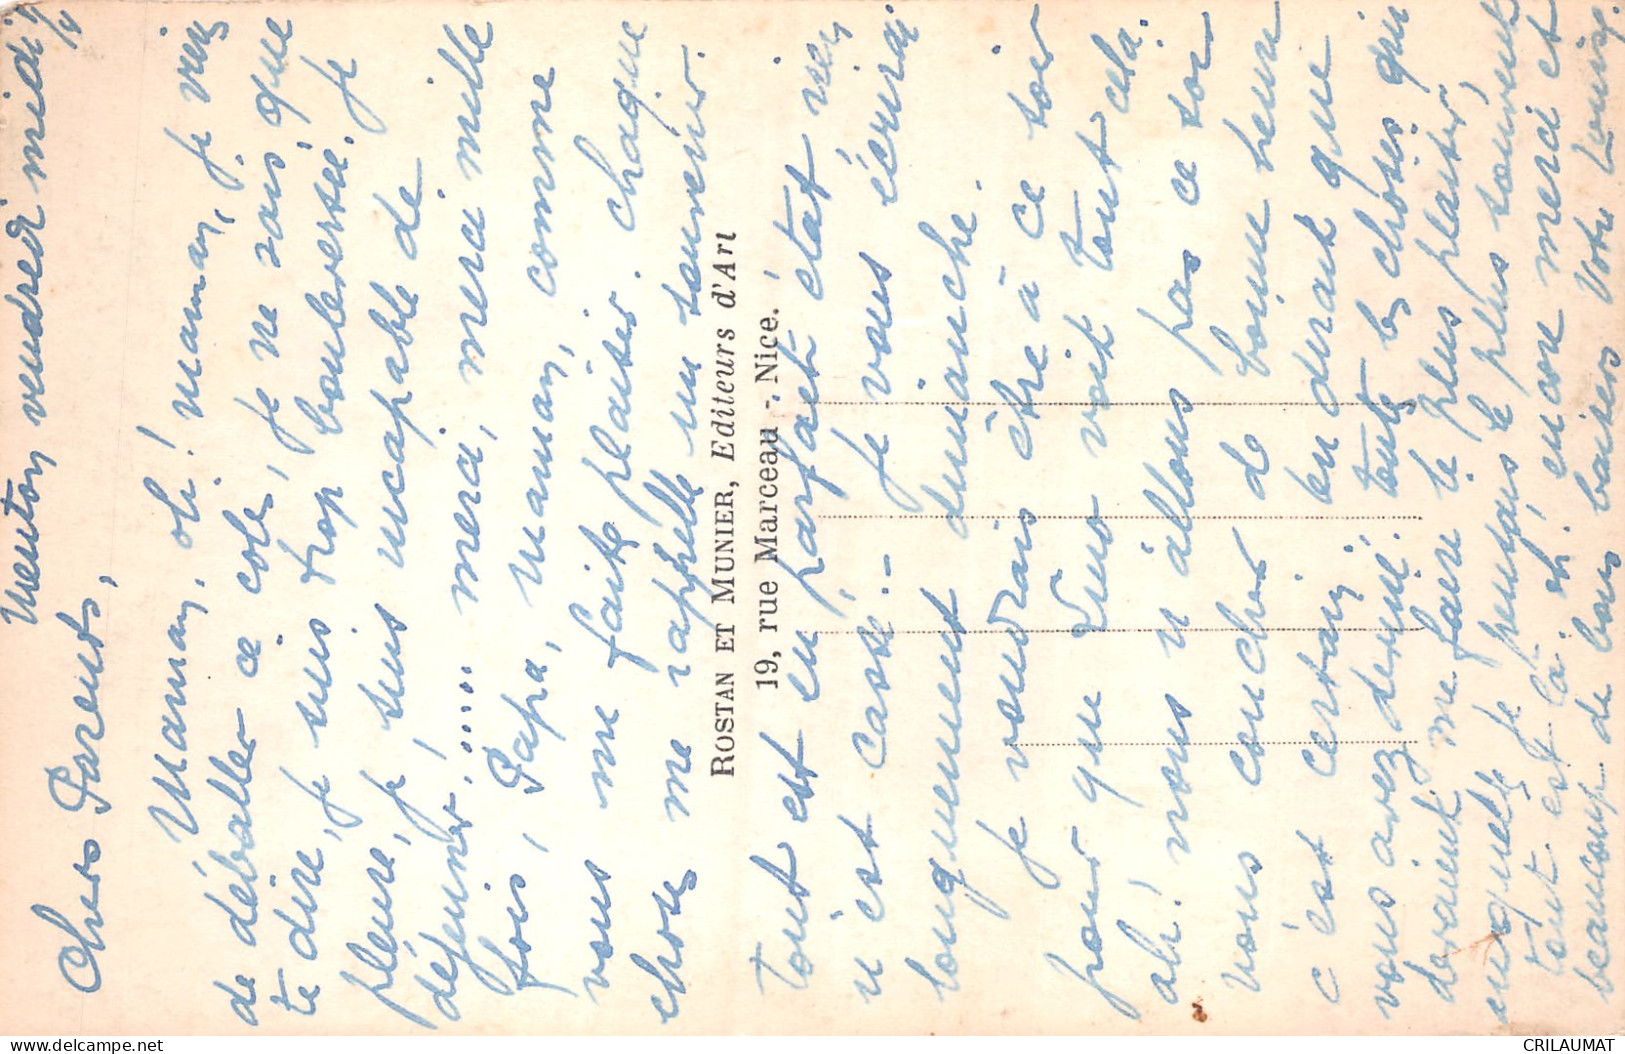 Menton vendredi midi ¼
Chers Parents,
Maman, oh! maman, je viens
de déballer ce colis, je ne sais que
te dire, je suis trop bouleversée. Je
pleure, je suis incapable de
déjeuner!..... merci, merci mille
fois, Papa, maman, comme
vous me faites plaisir. Chaque
chose me rappelle un souvenir.
ROSTAN ET MUNIER, Editeurs d'Art
19, rue Marceau - Nice.
Tout est en parfait état rien
n'est cassé. - Je vous écrirai
longuement dimanche.
Je voudrais être à ce soir
pour que Nino voit tout cela.
ah! nous n'allons pas ce soir
nous coucher de bonne heure
c'est certain, en durant que
vous avez deviné toutes les choses qui
devraient me faire le plus plaisir,
auxquelles je pensais le plus souvent
tout est là. oh! encore merci et
beaucoup de bons baisers Votre Louise.
CRILAUMAT